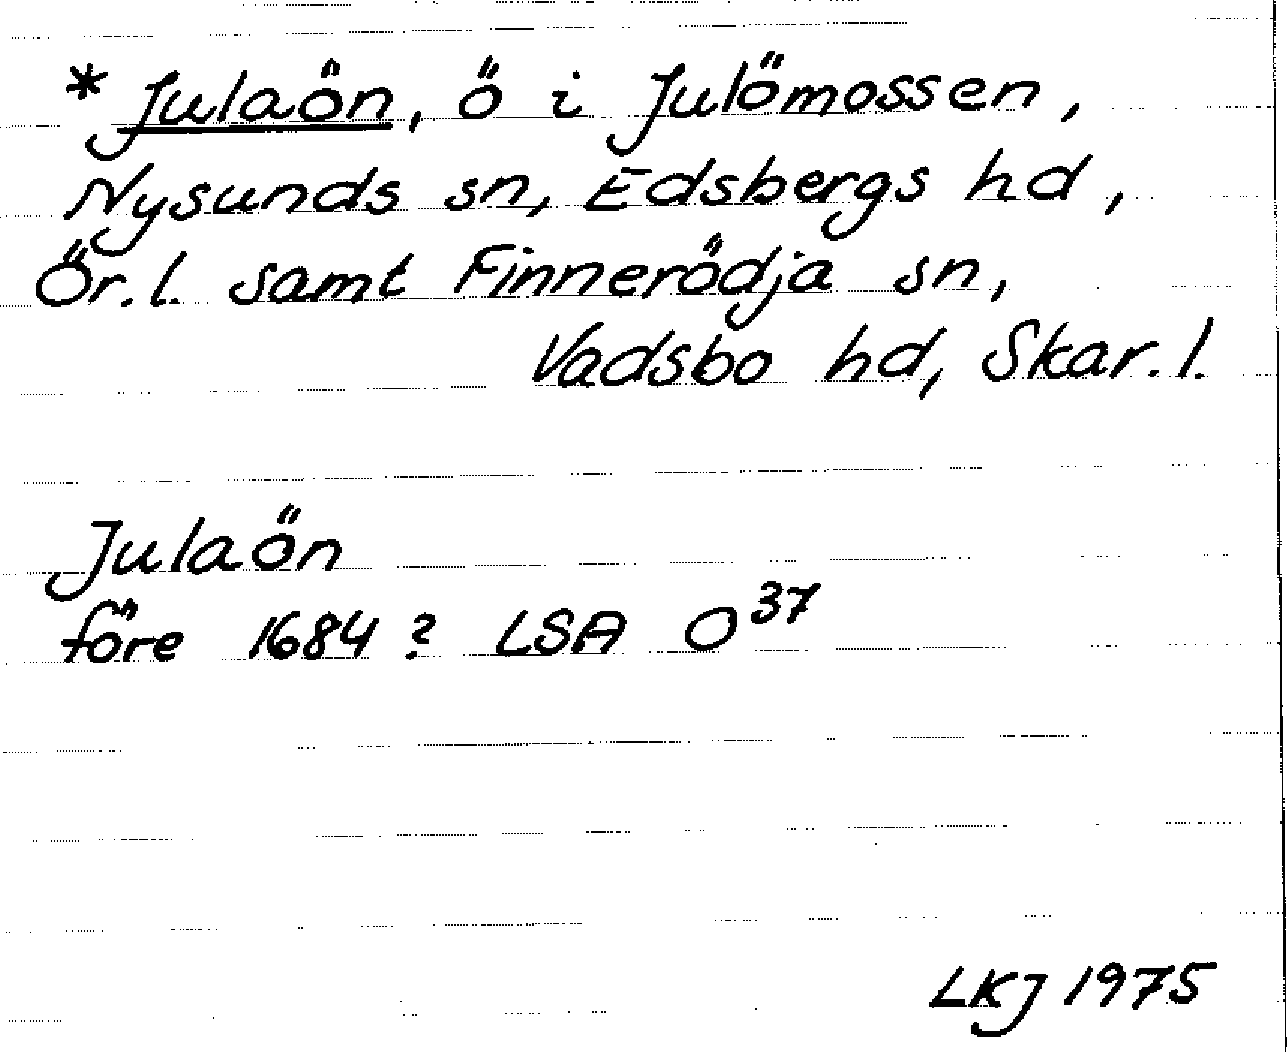 * Julaön, ö i Julömossen,
Nysunds sn, Edsbergs hd,
Ör.l. samt Finnerödja sn,
Vadsbo hd, Skar.l.
Julaön
före 1684? LSA O³⁷
LKJ 1975